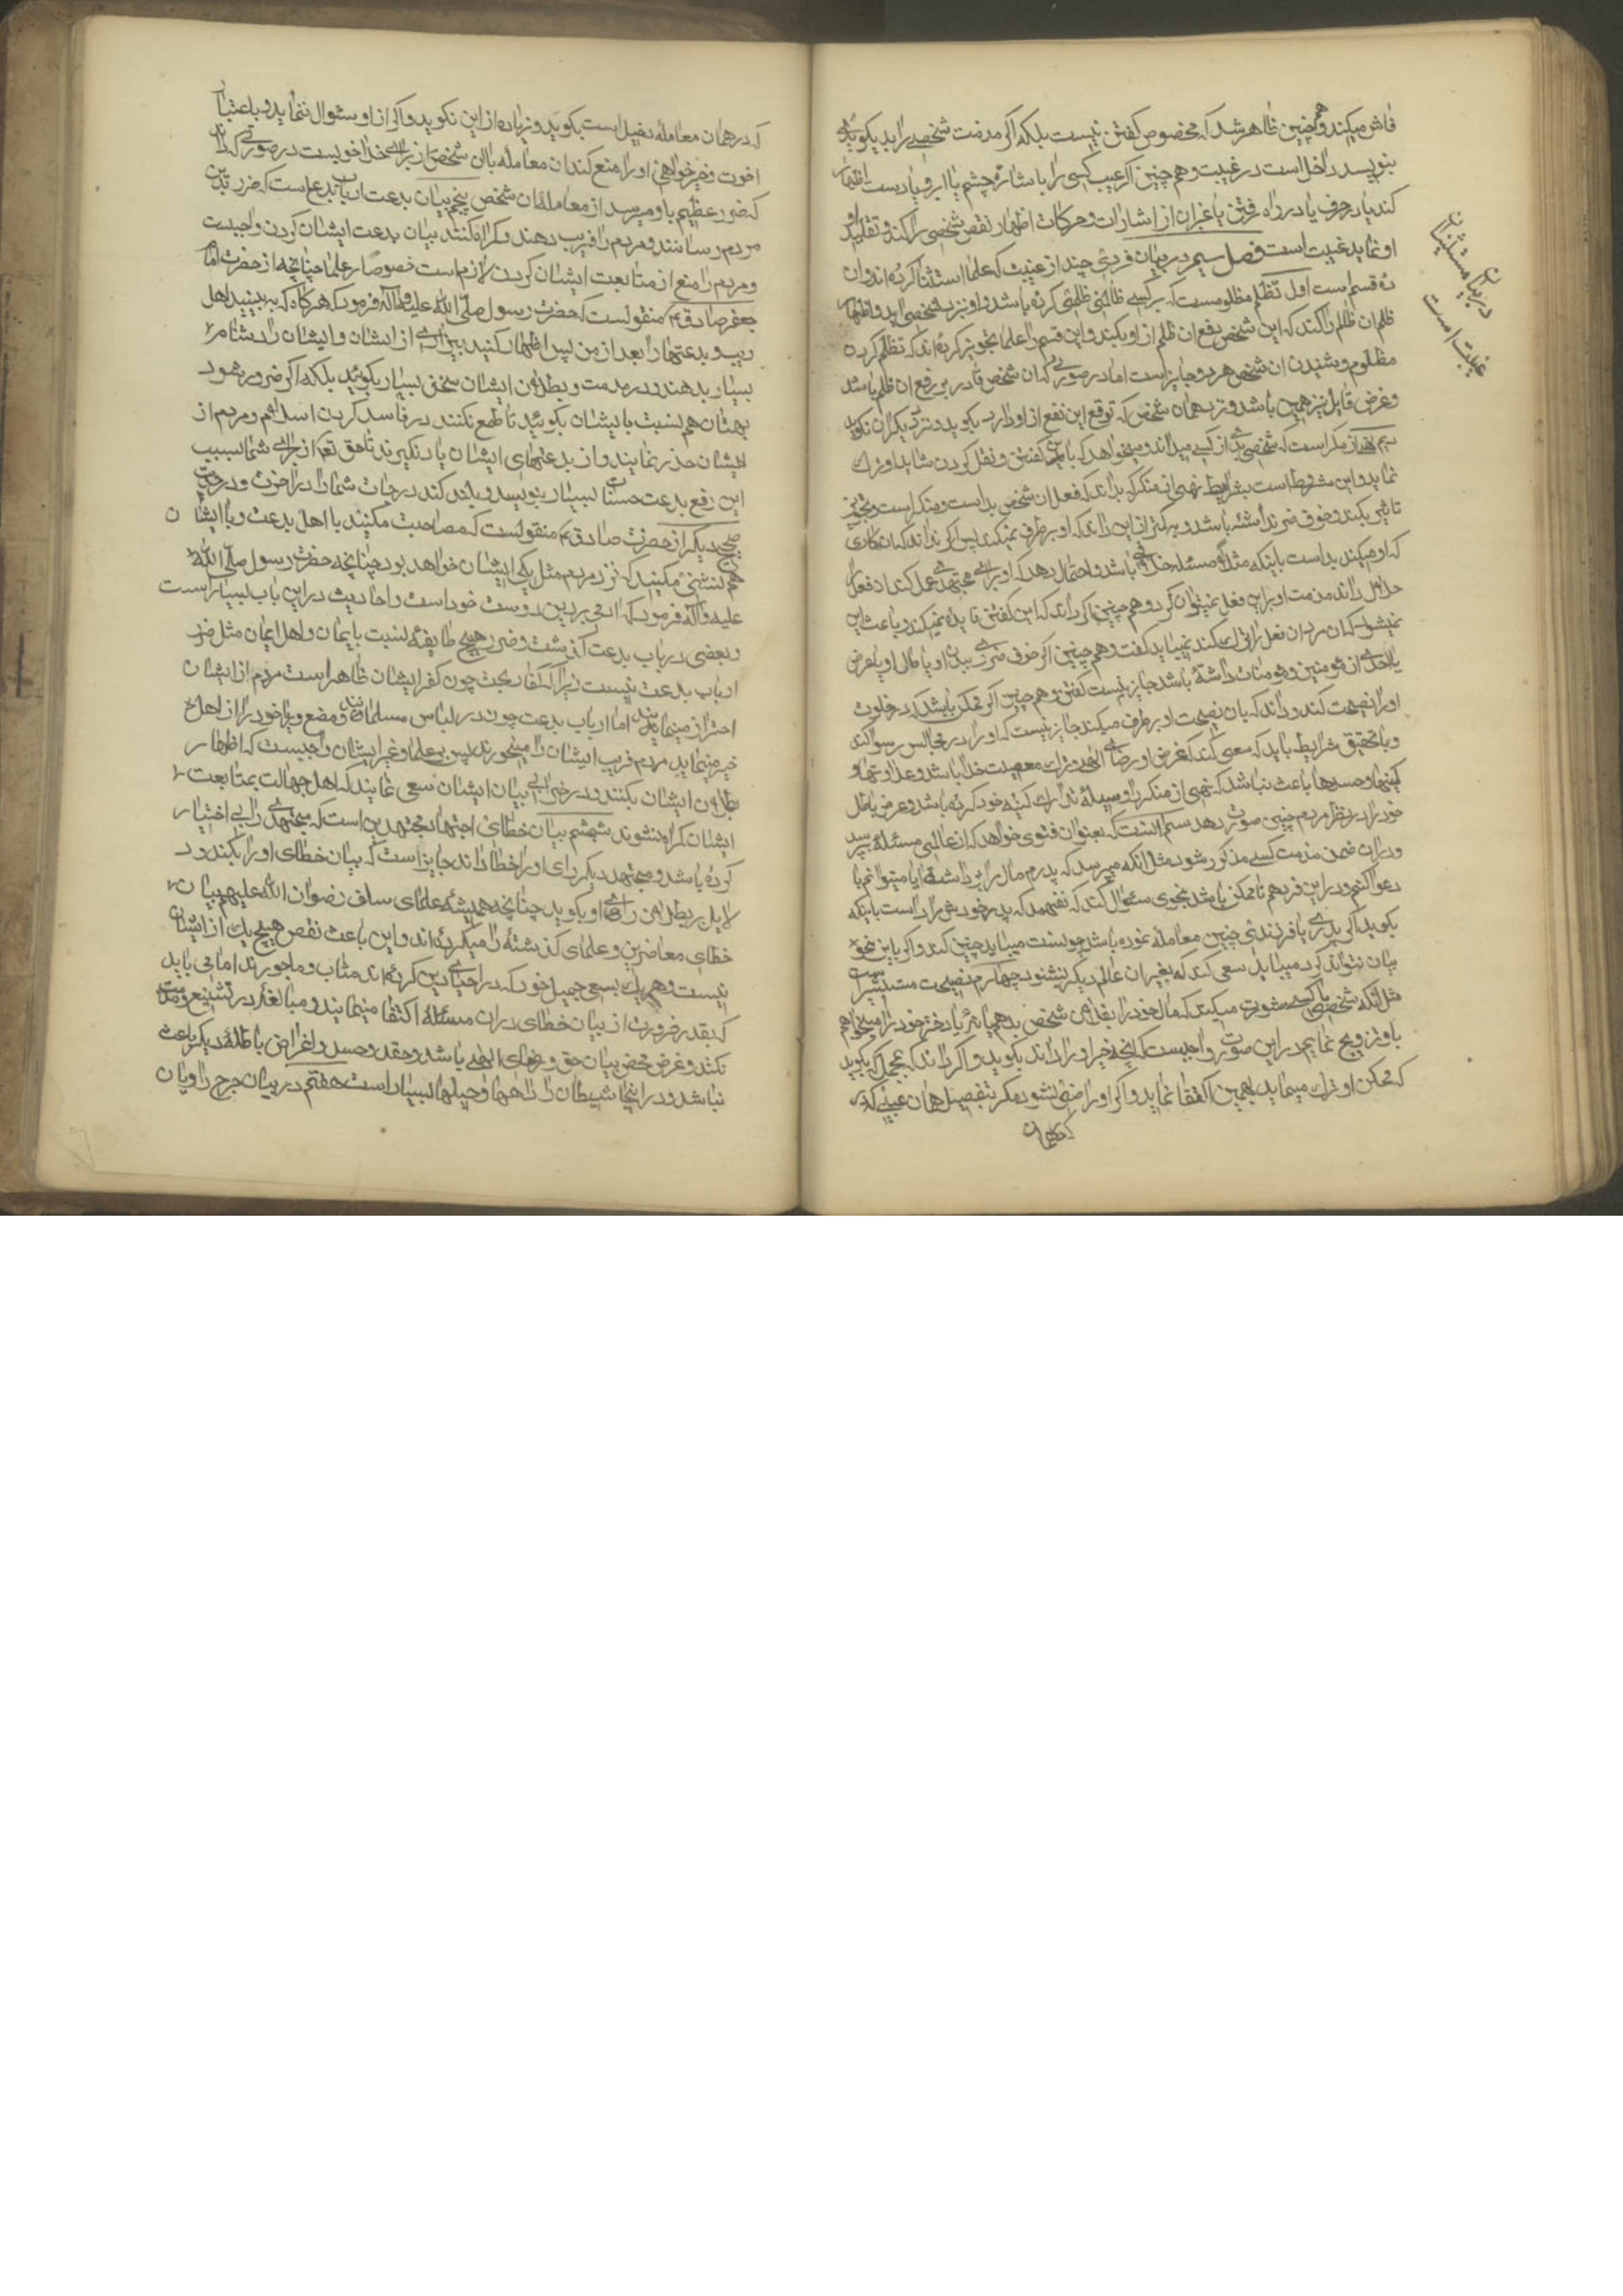 فاش میکند و همچنین ظاهر شد که مخصوص کفتن نیست بلکه اکر مذمت شخصی را بد بکوید یا
بنویسد داخل است در غیبت و هم چنین اکر عیب کسی را باشارهٔ چشم یا ابرو یا دست اظهار
کند یا در حرف یا در راه رفتن یا غیر ان از اشارات و حرکات اظهار نقص شخصی را کند و تقلید او
او نماید غیبت است فصل سیم در بیان فردی چند از غیبت که علما استثنا کرده اند و ان
ده قسم است اول تظلم مظلومست که بر کسی ظالمی ظلمی کرده باشد و او نزد شخصی اید و اظهار
ظلم ان ظالم را کند که این شخص دفع ان ظلم از او بکند و این قسم را علما تجویز کرده اند که تظلم کردن
مظلوم و شنیدن ان شخص هر دو جایز است اما در صورتی که ان شخص قادر بر رفع ان ظلم باشد
و غرض قایل نیز همین باشد و نزد همان شخص که توقع این نفع از او دارد بکوید و نزد دیکران نکوید
که شخصی بدی از کسی میداند و میخواهد که باین کفتن و نقل کردن شاید او ترک
نماید و این مشروط است بشرایط نهی از منکر که بداند که فعل ان شخص بد است و منکر است و تجویز
تاثیر بکند و خوف ضرر نداشته باشد و به کمتر از این داند که او بر طرف نمیکند پس اکر نداند که ان کاری
که او میکند بد است باینکه مثلاً مسئله خلافی باشد و احتمال دهد که او برای مجتهدی عمل کند از فعل را
حلال داند مذمت او بر این فعل نمیتوان کرد و هم چنین اکر داند که این کفتن فایده نمیکند و باعث این
نمیشود که ان مرد ان فعل را ترک کند نمیباید کفت و هم چنین اکر خوف ضرری ببدن او یا مال او یا عرض
یا احدی از مومنین و مومنات داشته باشد جایز نیست کفتن و هم چنین اکر ممکن باشد که در خلوت
او را نصیحت کند و داند که بان نصیحت او بر طرف میکند جایز نیست که او را در مجالس رسوا کند
و با تحقیق شرایط باید که سعی کند که غرض او رضای الهی و ترک معصیت خدا باشد و عداوتها و
کینها و حسدها باعث نباشد که نهی از منکر را وسیلهٔ تدارک کینه خود کرده باشد و غرض باطل
خود را در نظر مردم چنین صورت دهد سیم انست که بعنوان فتوی خواهد که از عالمی مسئله بپرسد
و در ان ضمن مذمت کسی مذکور شود مثل انکه میپرسد که پدرم مال مرا برداشته ایا میتوانم با
دعوا کنم و در این فرد هم تا ممکن باشد بنحوی سئوال کند که نفهمد که پدر خودش مراد است باینکه
بکوید اکر پدری با فرزندی چنین معامله نموده باشد چونست میباید چنین کند و اکر باین نحو
بیان نتواند کرد میباید سعی کند که بغیر ان عالم دیکری نشنود چهارم نصیحت مستشیر است
مثل انکه شخصی با کسی مشورت میکند که مال خود را بفلان شخص بدهم یا نه یا دختر خود را میخواهم
باو تزویج نمایم در این صورت واجبست که انچه خیر او را داند بکوید و اکر داند که مجمل که بکوید
که ممکن او ترک مینماید بهمین اکتفا نماید و اکر او راضی نشود مکر بتفصیل همان عیبی که
در بیان مستثنیات
غیبت است
که در همان معامله دخیل است بکوید و زیاده از این نکوید و اکر از او سئوال ننماید و باعتبار
اخوت و خیرخواهی او را منع کند از معامله با ان شخص از برای خدا خوبست در صورتی که داند
که ضرر عظیم باو میرسد از معامله ان شخص پنجم بیان بدعت ارباب بدع است که ضرر بدین
مردم رسانند و مردم را فریب دهند و کمراه کنند بیان بدعت ایشان کردن واجبست
و مردم را منع از متابعت ایشان کردن لازم است خصوصاً بر علما چنانچه از حضرت امام
جعفر صادق ع منقولست که حضرت رسول صلی الله علیه و اله فرمود که هر کاه که به بینید اهل
ریب و بدعتها را بعد از من پس اظهار کنید بیزاری از ایشان و ایشان را دشنام
بسیار بدهند و در مذمت و بطلان ایشان سخن بسیار بکوئید بلکه اکر ضرور شود
بهتان هم نسبت بایشان بکوئید تا طمع نکنند در فاسد کردن اسلام و مردم از
ایشان حذر نمایند و از بدعتهای ایشان یاد نکیرند تا حق تعالی از برای شما بسبب
این رفع بدعت حسنات بسیار بنویسد و بلند کند درجات شما را در اخرت و در حدیث
صحیح دیکر از حضرت صادق ع منقولست که مصاحبت مکنید با اهل بدعت و با ایشان
هم نشینی مکنید که نزد مردم مثل یکی ایشان خواهد بود چنانچه حضرت رسول صلی الله
علیه و اله فرمود که ادمی بر دین دوست خود است و احادیث در این باب بسیار است
و بعضی در باب بدعت کذشت و ضرر هیچ طایفه نسبت بایمان و اهل ایمان مثل ضرر
ارباب بدعت نیست زیرا که کفار بحت چون کفر ایشان ظاهر است مردم از ایشان
احتراز مینمایند اما ارباب بدعت چون در لباس مسلمانند و وضع و خود را از اهل
خیر مینماید مردم فریب ایشان را میخورند پس بر علما و غیر ایشان واجبست که اظهار
بطلان ایشان بکنند و در خرابی بنیان ایشان سعی نمایند که اهل جهالت بمتابعت
ایشان کمراه نشوند ششم بیان خطای اجتهاد مجتهدین است که مجتهدی رایی اختیار
کرده باشد و مجتهد دیکر رای او را خطا داند جایز است که بیان خطای او را بکند و د
لایل بر بطلان رای او بکوید چنانچه همیشه علمای سلف رضوان الله علیهم بیان
خطای معاصرین و علمای کذشته را میکرده اند و این باعث نقص هیچ یک از ایشان
نیست و هر یک بسعی جمیل خود که در احیای دین کرده اند مثاب و ماجورند اما می باید
که بقدر ضرورت از بیان خطای در ان مسئله اکتفا مینمایند و مبالغه در تشنیع و مذمت
نکنند و غرض محض بیان حق و رضای الهی باشد و حقد و حسد و اغراض باطلهٔ دیکر باعث
نباشد و در اینجا شیطان را راهها و حیلها بسیار است هفتم در بیان جرح راویان